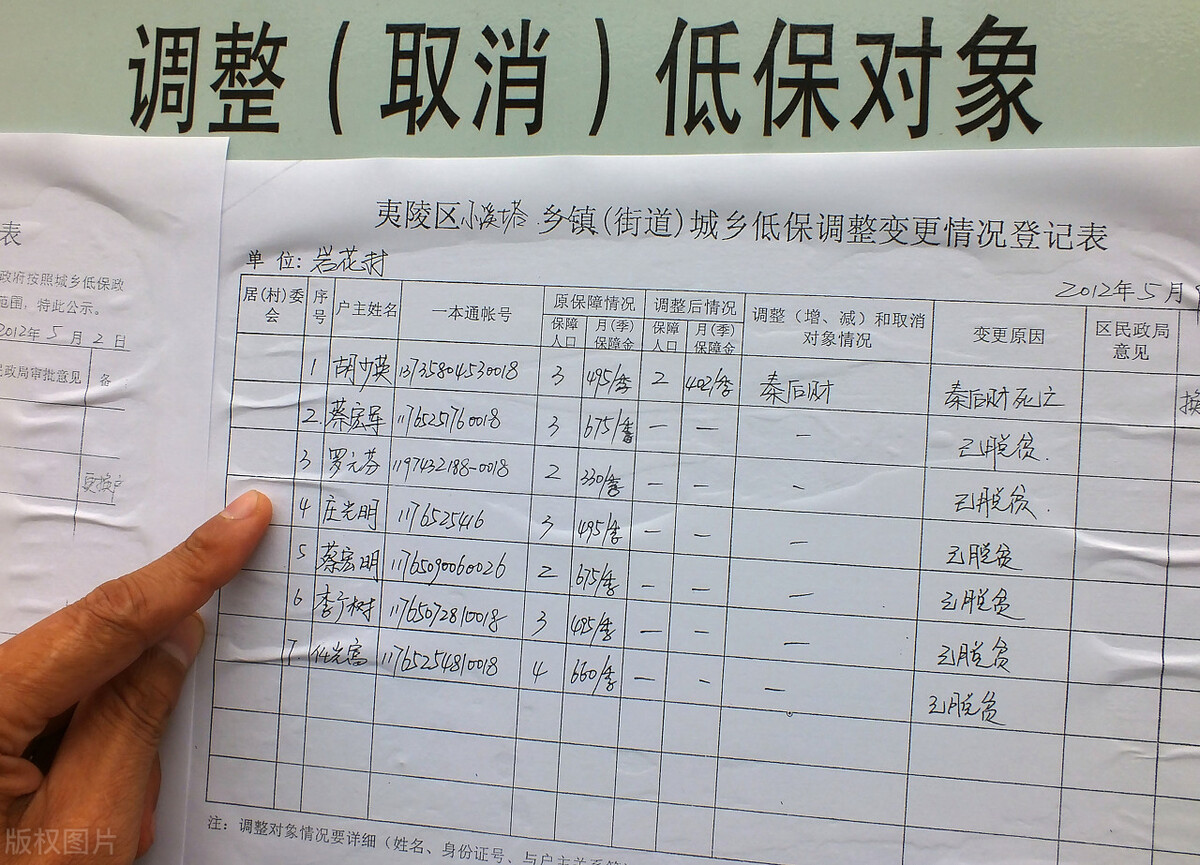 调整（取消）低保对象
表
政府按照城乡低保政
范围，特此公示。
2012年5月2日
民政局审批意见 备
夷陵区小溪塔乡镇(街道)城乡低保调整变更情况登记表
单 位：岩花村
2012年5月
居(村)委会 序号 户主姓名 一本通帐号 原保障情况 调整后情况 调整（增、减）和取消对象情况 变更原因 区民政局意见
保障人口 月(季)保障金 保障人口 月(季)保障金
1 胡少英 13735804530018 3 495/季 2 402/季 秦后财 秦后财死亡
2. 蔡宏军 11765251760018 3 675/季 — — — 已脱贫.
3 罗元芬 1197432188-0018 2 330/季 — — — 已脱贫.
4 庄光明 1176525416 3 495/季 — — — 已脱贫
5 蔡宏明 11765090060026 2 675/季 — — — 已脱贫
6 李广树 11765072810018 3 495/季 — — — 已脱贫
7. 任光富 11765254810018 4 660/季 — — — 已脱贫
注：调整对象情况要详细（姓名、身份证号、与户主关系等
版权图片